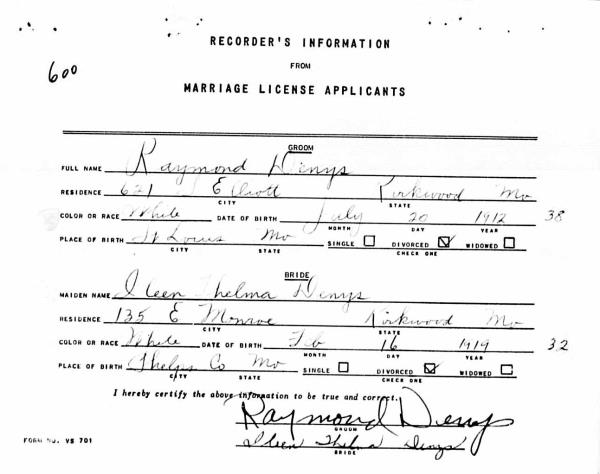 RECORDER'S INFORMATION
FROM
600
MARRIAGE LICENSE APPLICANTS
GROOM
FULL NAME Raymond Denys
RESIDENCE 621 Elliott Kirkwood Mo
CITY STATE
COLOR OR RACE White DATE OF BIRTH July 20 1912 38
MONTH DAY YEAR
PLACE OF BIRTH St Louis Mo SINGLE DIVORCED WIDOWED
CITY STATE CHECK ONE
BRIDE
MAIDEN NAME Ileen Thelma Denys
RESIDENCE 135 E Monroe Kirkwood Mo
CITY STATE
COLOR OR RACE White DATE OF BIRTH Feb 16 1919 32
MONTH DAY YEAR
PLACE OF BIRTH Phelps Co Mo SINGLE DIVORCED WIDOWED
CITY STATE CHECK ONE
I hereby certify the above information to be true and correct.
Raymond Denys
GROOM
Ileen Thelma Denys
BRIDE
FORM NO. VS 701